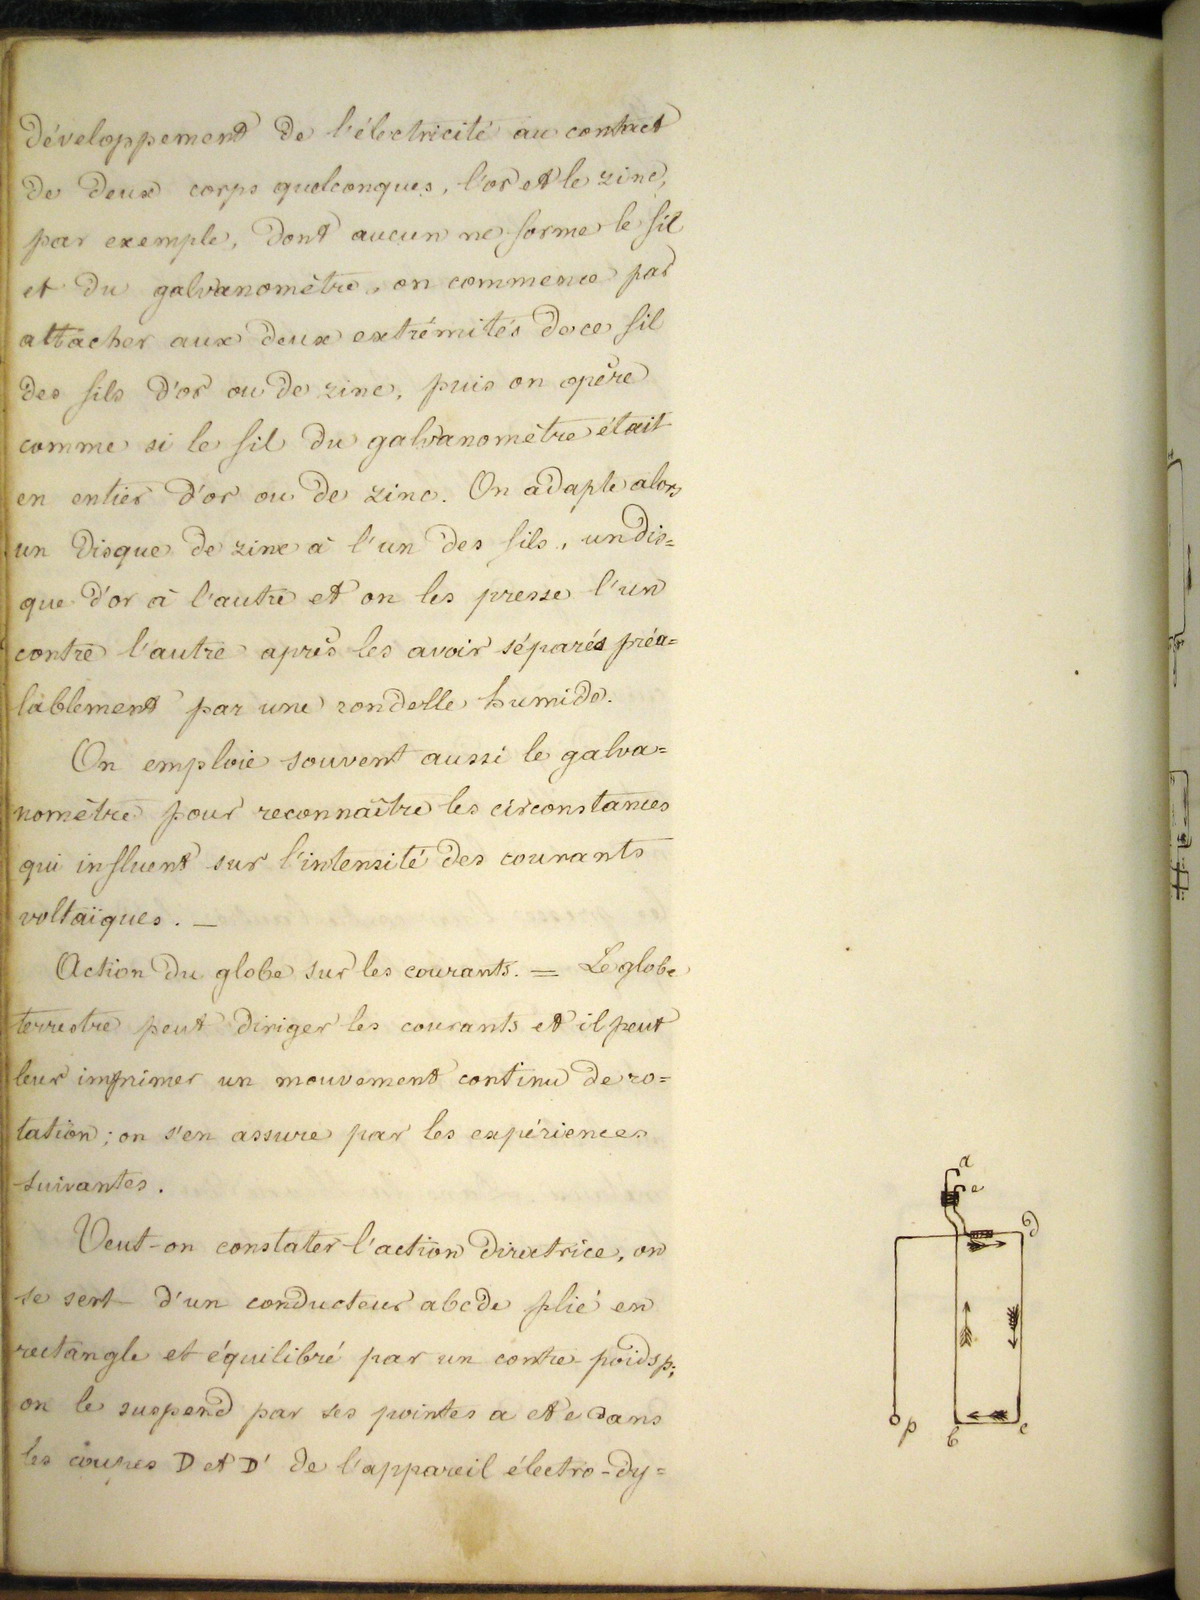 développement de l'électricité au contact
de deux corps quelconques, l'or et le zinc,
par exemple, dont aucun ne forme le fil
et du galvanomètre, on commence par
attacher aux deux extrémités de ce fil
des fils d'or ou de zinc, puis on opère
comme si le fil du galvanomètre était
en entier d'or ou de zinc. On adapte alors
un disque de zinc à l'un des fils, un dis=
que d'or à l'autre et on les presse l'un
contre l'autre après les avoir séparés préa=
lablement par une rondelle humide.
On emploie souvent aussi le galva=
nomètre pour reconnaître les circonstances
qui influent sur l'intensité des courants
voltaïques. —
Action du globe sur les courants. = Le globe
terrestre peut diriger les courants et il peut
leur imprimer un mouvement continu de ro=
tation; on s'en assure par les expériences
suivantes.
Veut-on constater l'action directrice, on
se sert d'un conducteur abcde plié en
rectangle et équilibré par un contre-poids p;
on le suspend par ses pointes a et e dans
les coupes D et D' de l'appareil électro-dy=
a
e
d
p
b
c